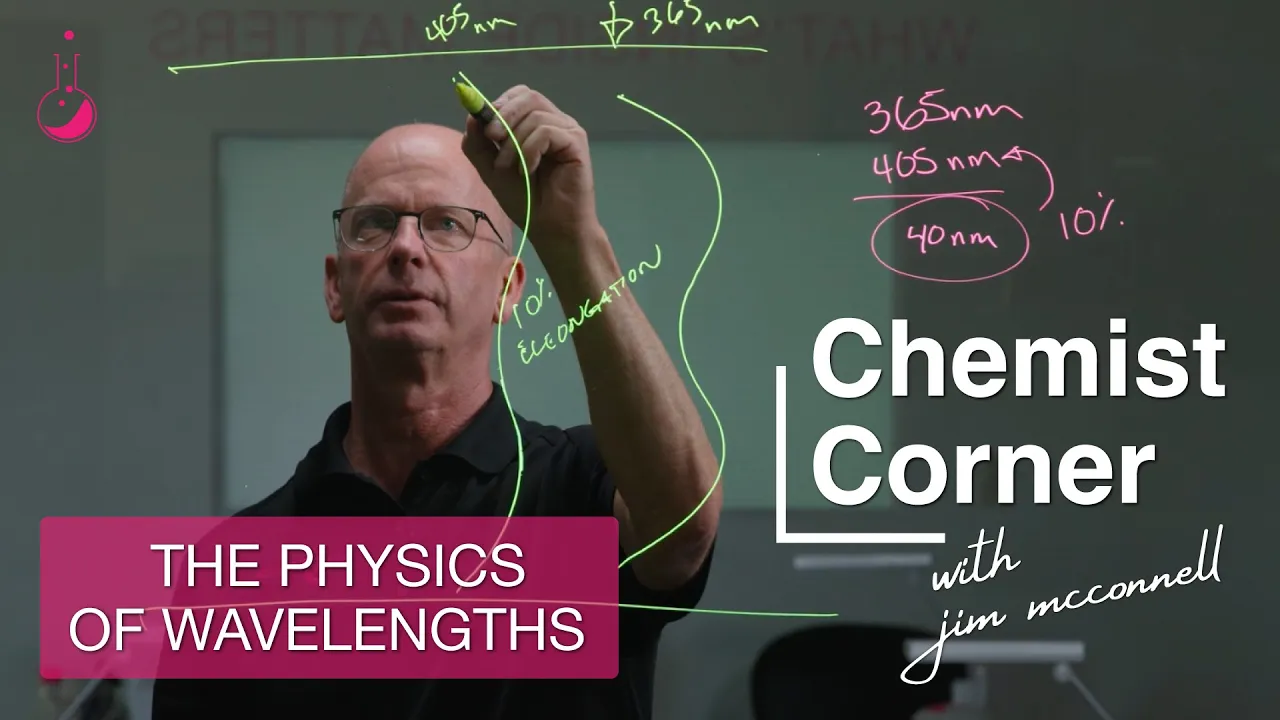 405nm
365nm
WHAT'S INSIDE MATTERS
365nm
405nm
10%
40nm
10%
ELEONGATION
Chemist
Corner
with
jim mcconnell
THE PHYSICS
OF WAVELENGTHS